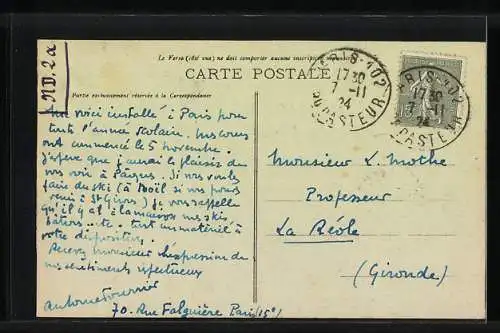 ND. 2a
Le Verso (côté vue) ne doit comporter aucune inscription
CARTE POSTALE
Partie exclusivement réservée à la Correspondance
PARIS-102
1730
7-11
24
R. PASTEUR
PARIS-102
1730
7-11
24
PASTEUR
Me voici installé à Paris pour
toute l'année scolaire. Mes cours
ont commencé le 5 novembre.
J'espère que j'aurai le plaisir de
vous voir à Pâques. Si vous voulez
faire du ski (à Noël si vous
à St Girons) je vous rappelle
qu'il y a à la maison mes skis,
bâtons, etc. tout un matériel à
votre disposition.
Recevez Monsieur l'expression de
mes sentiments respectueux
Antoine Fournié
70, Rue Falguière Paris (15e)
Monsieur L. Mothe
Professeur
La Réole
(Gironde)